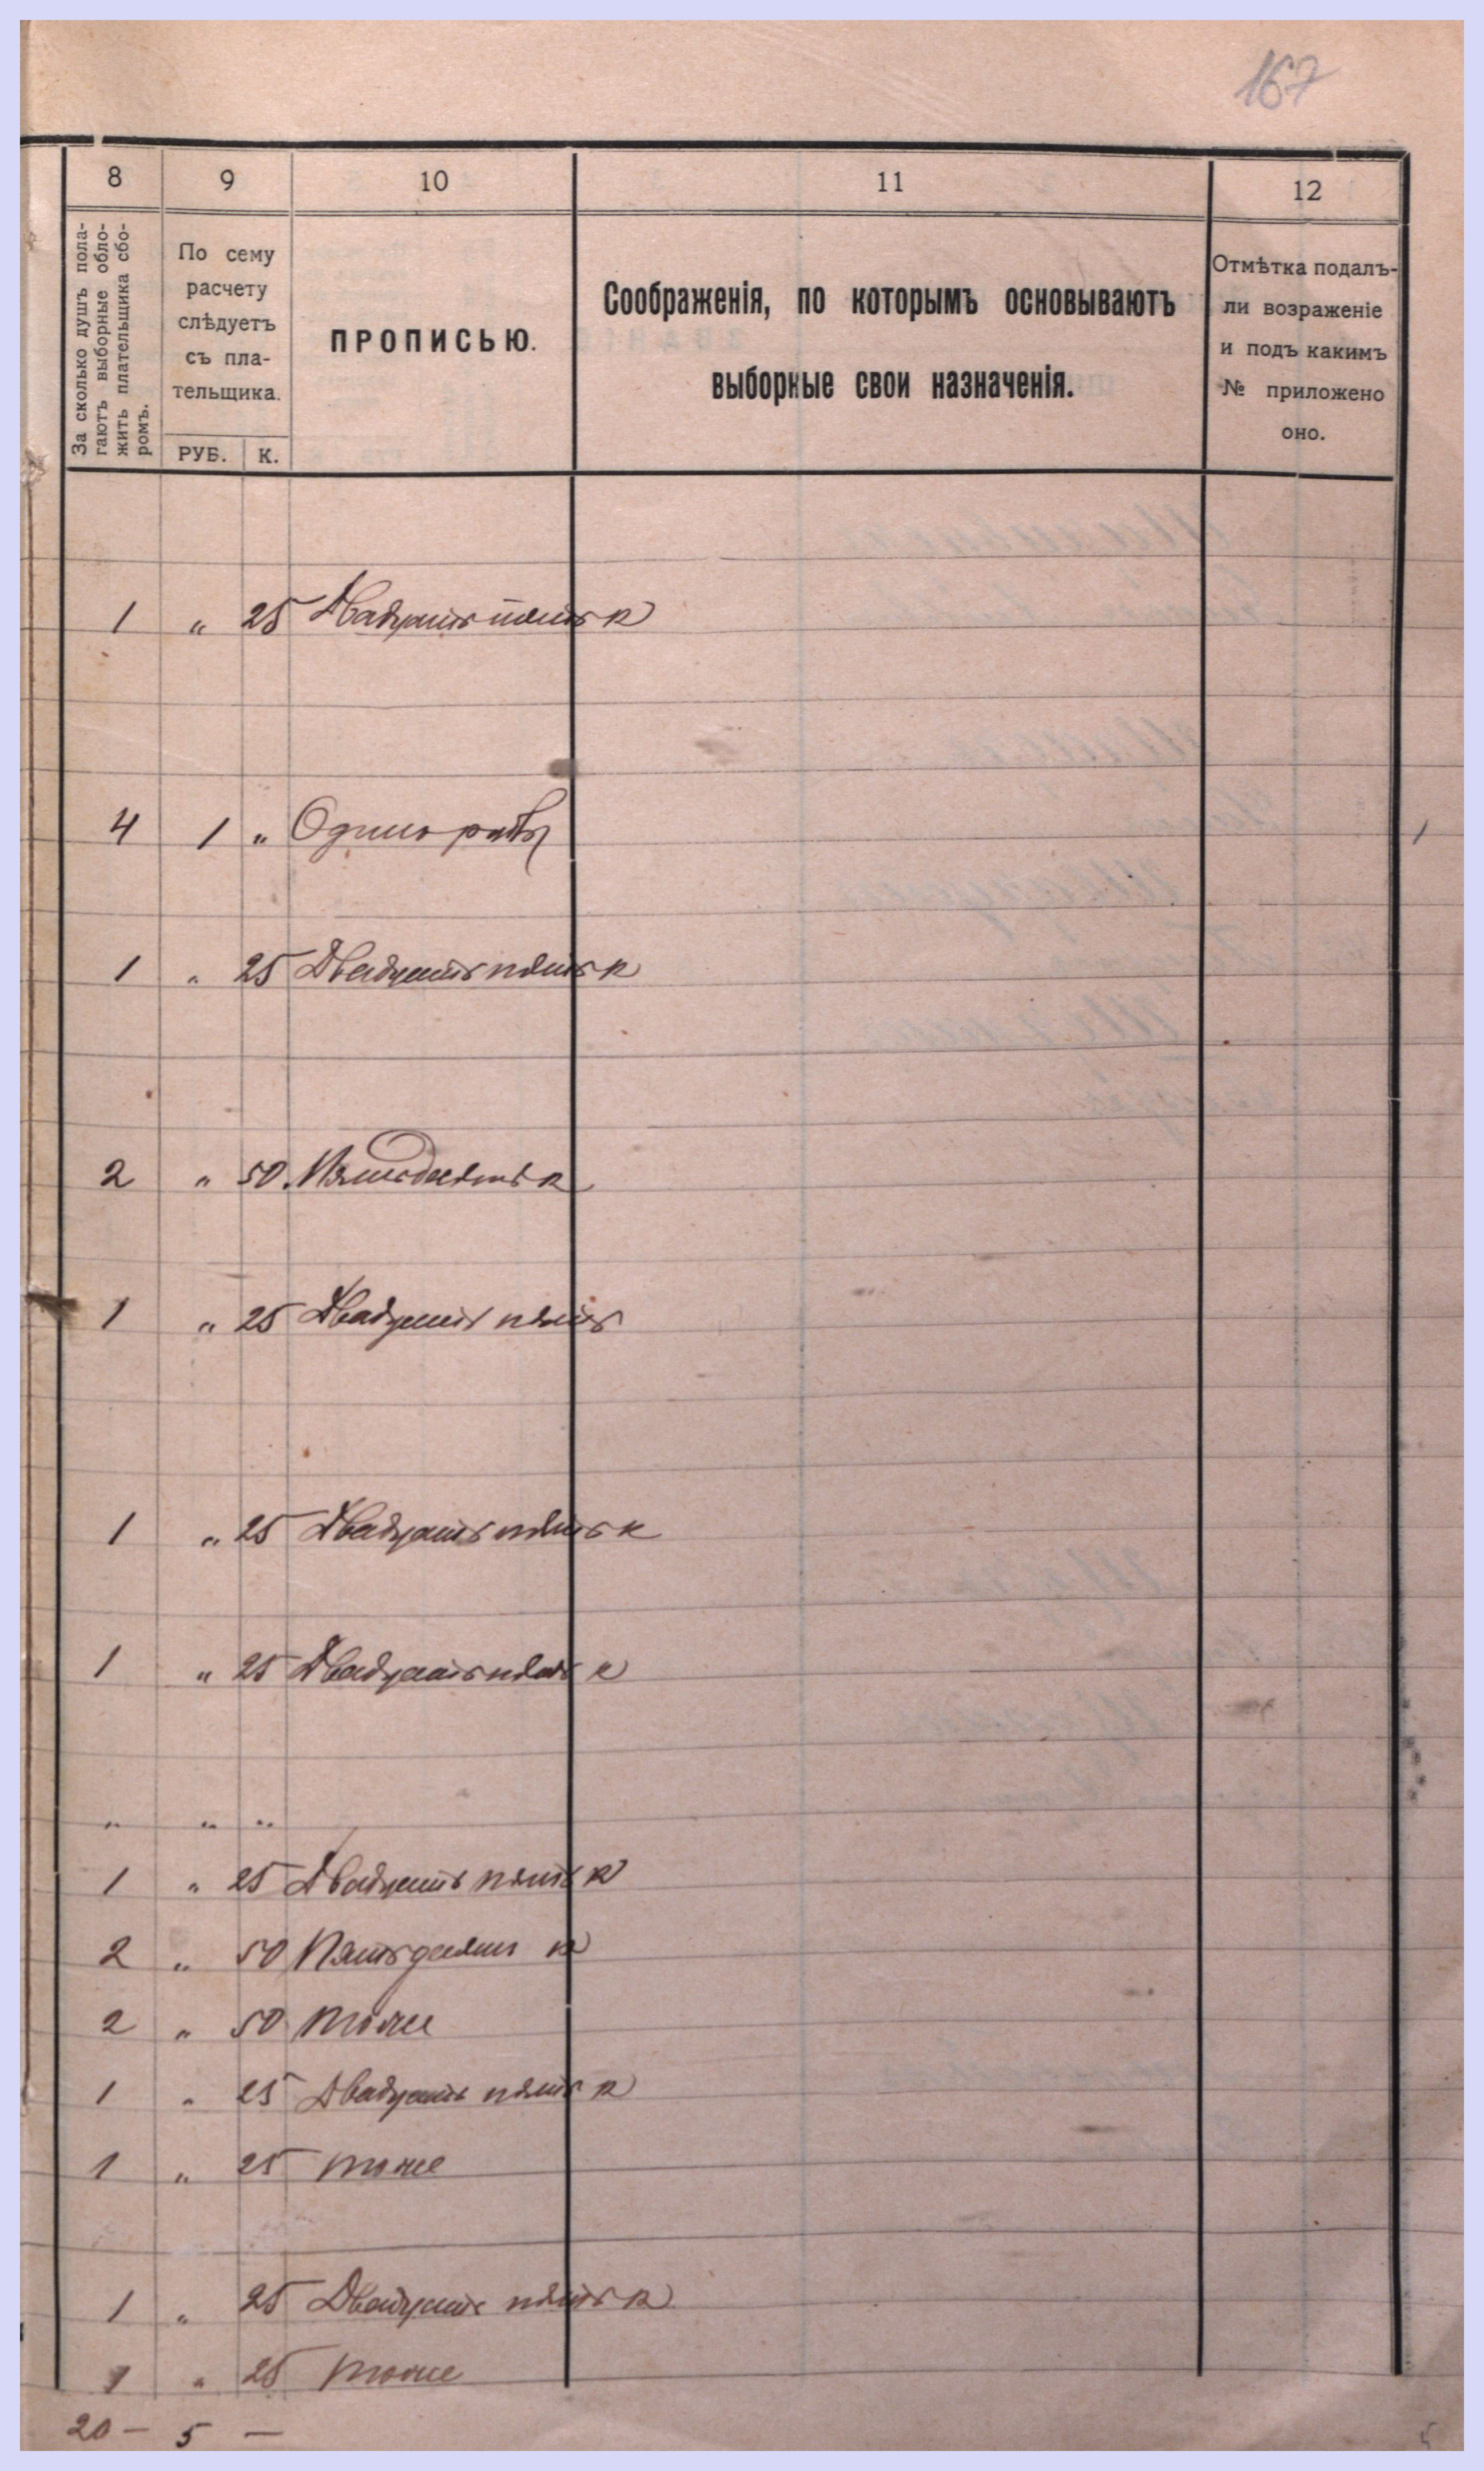 167
8 9 10 11 12
За сколько душъ пола-
гаютъ выборные обло-
жить плательщика сбо-
ромъ.
По сему
расчету
слѣдуетъ
съ пла-
тельщика.
РУБ. К.
ПРОПИСЬЮ.
Соображенія, по которымъ основываютъ
выборные свои назначенія.
Отмѣтка подалъ-
ли возраженіе
и подъ какимъ
№ приложено
оно.
1 „ 25 Двадцать пять к
4 1 „ Одинъ рубль
1 „ 25 Двадцать пять к
2 „ 50. Пятьдесятъ к
1 „ 25 Двадцать пять
1 „ 25 Двадцать пять к
1 „ 25 Двадцать пять к
„ „ „
1 „ 25 Двадцать пять к
2 „ 50 Пятьдесятъ к
2 „ 50 тоже
1 „ 25 Двадцать пять к
1 „ 25 тоже
1 „ 25 Двадцать пять к
1 „ 25 тоже
20 — 5 —